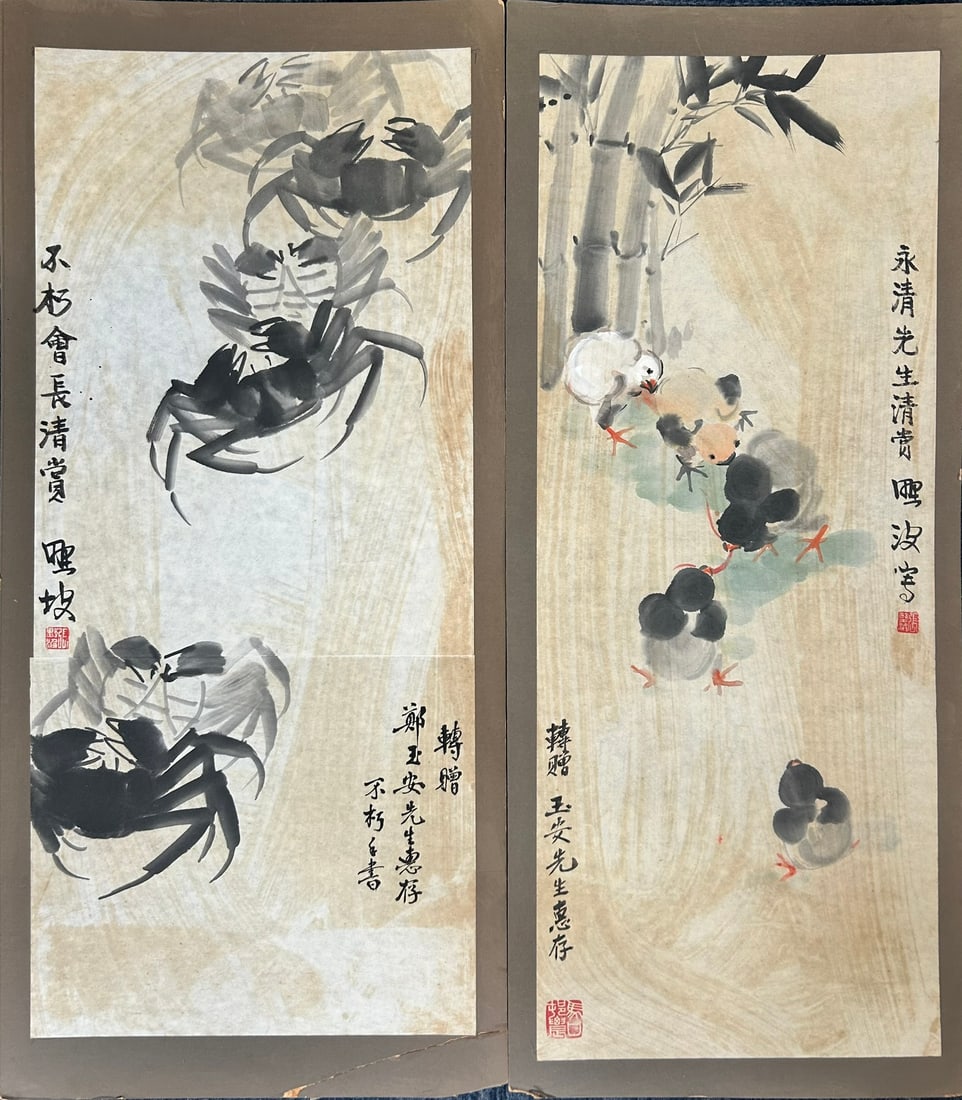 不朽會長清賞 熙坡
轉贈
鄭玉安先生惠存
不朽手書
永清先生清赏 熙波写
轉赠 玉安先生惠存